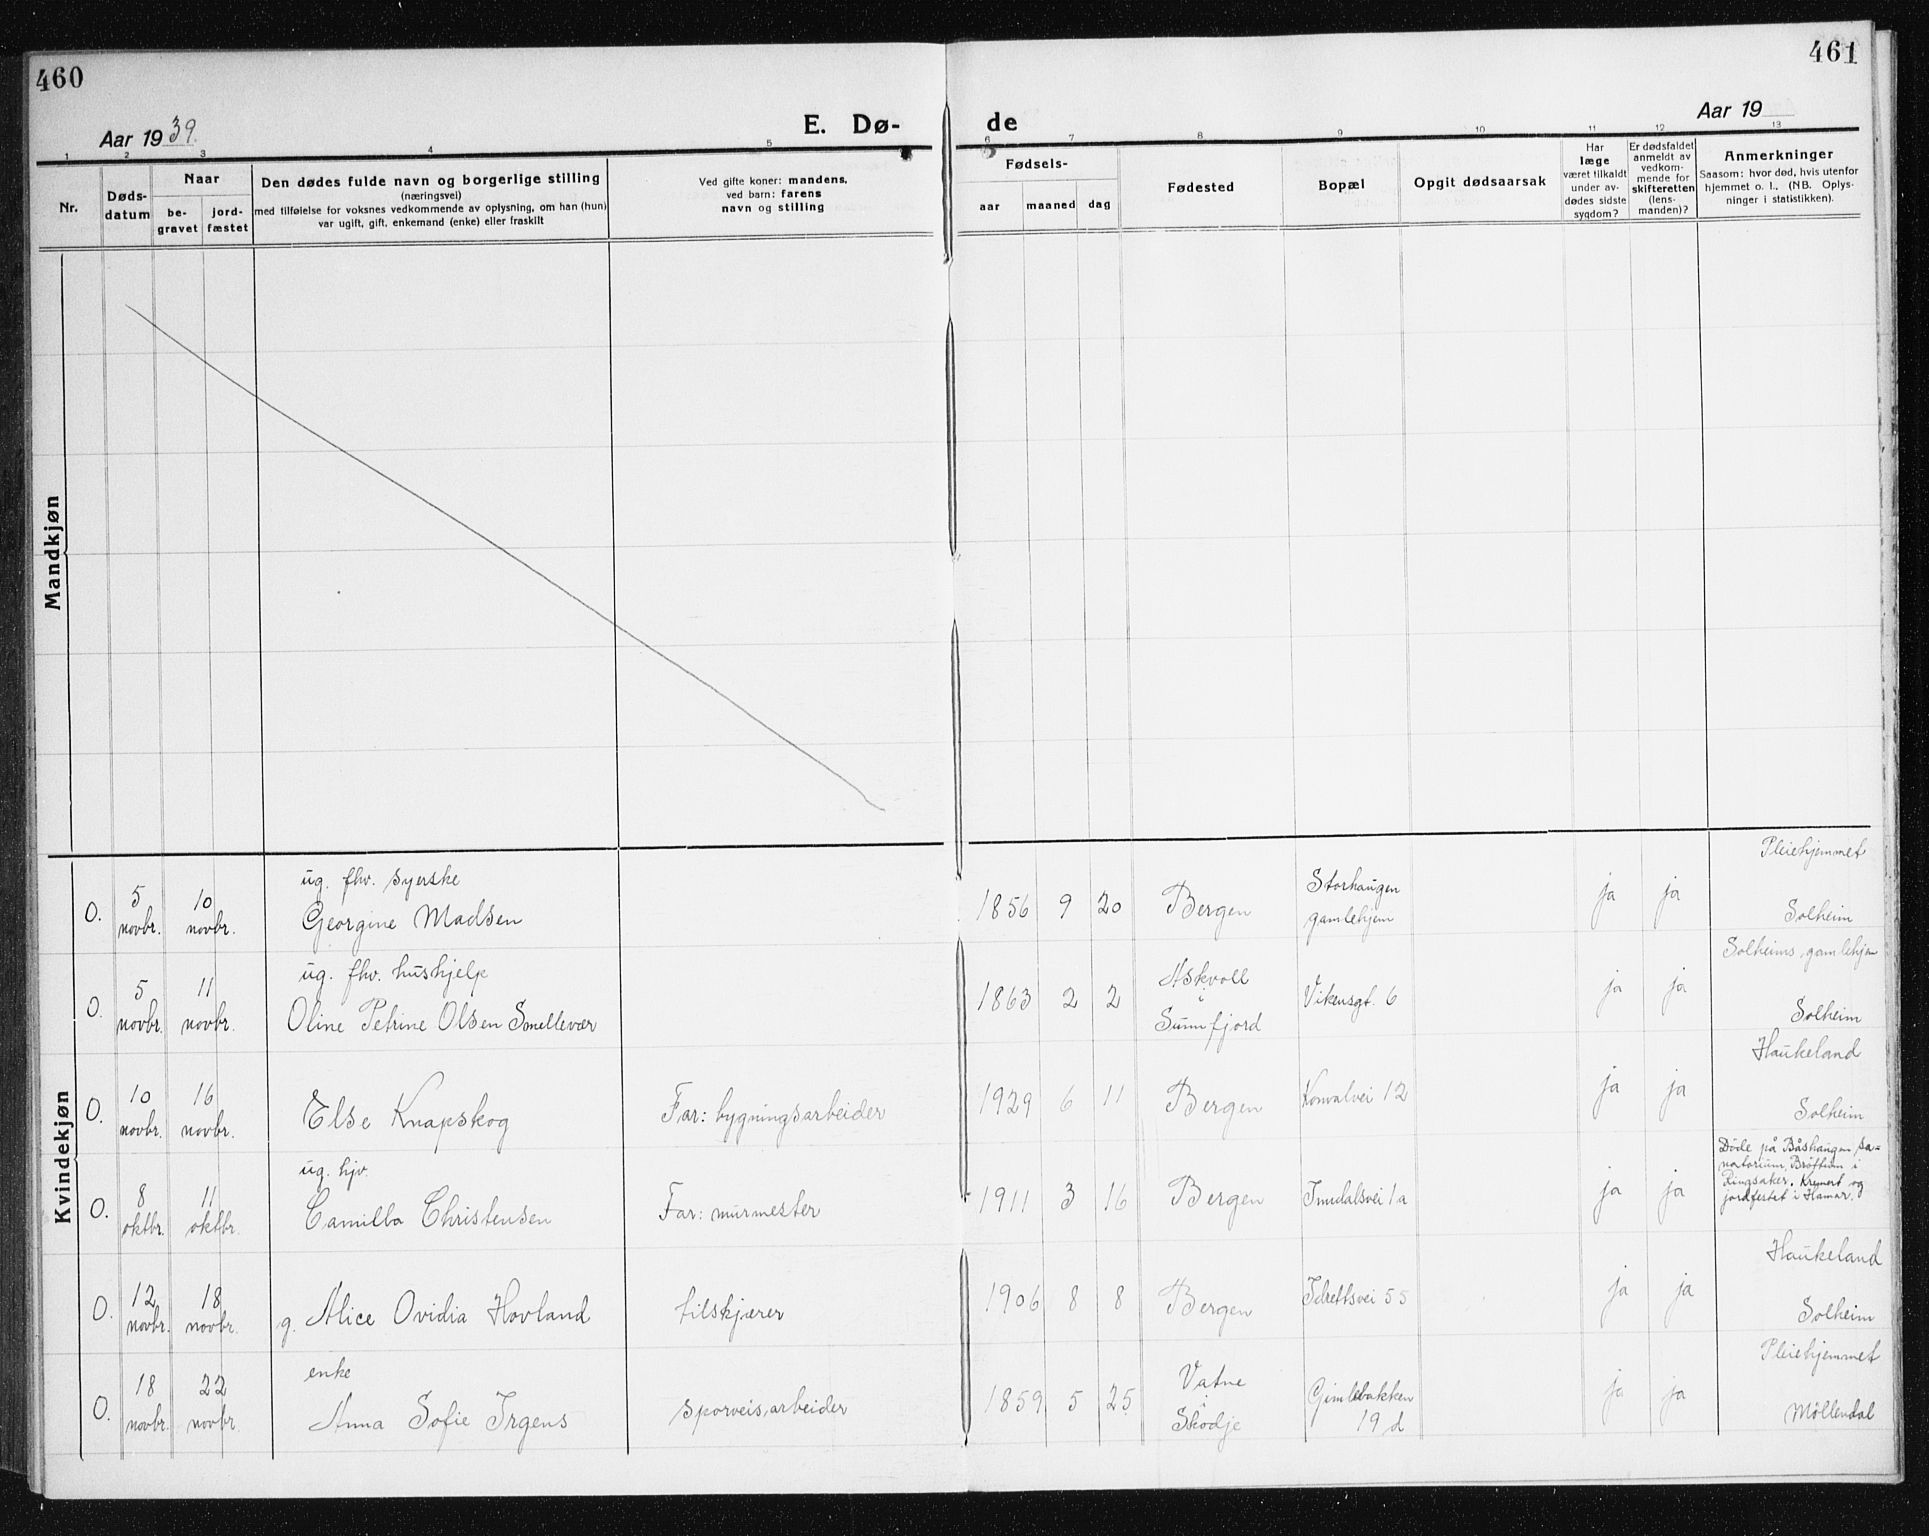 460
461
Aar 1939.
E. Dø-
de
Aar 19
1 2 3 4 5 6 7 8 9 10 11 12 13
Nr.
Døds-
datum
Naar
be-
gravet
jord-
fæstet
Den dødes fulde navn og borgerlige stilling
(næringsvei)
med tilføielse for voksnes vedkommende av oplysning, om han (hun)
var ugift, gift, enkemand (enke) eller fraskilt
Ved gifte koner: mandens,
ved barn: farens
navn og stilling
Fødsels-
aar maaned dag
Fødested
Bopæl
Opgit dødsaarsak
Har
læge
været tilkaldt
under av-
dødes sidste
sygdom?
Er dødsfaldet
anmeldt av
vedkom-
mende for
skifteretten
(lens-
manden)?
Anmerkninger
Saasom: hvor død, hvis utenfor
hjemmet o. l., (NB. Oplys-
ninger i statistikken).
Mandkjøn
Kvindekjøn
Pleiehjemmet
ug. fhv. syerske
Storhaugen
0. 5 10 Georgine Madsen 1856 9 20 Bergen gamlehjem ja ja Solheim
novbr. novbr.
Solheims gamlehjem
ug. fhv. hushjelp
Askvoll
0. 5 11 Oline Petrine Olsen Smellevær 1863 2 2 i Vikensgt. 6 ja ja Solheim
novbr. novbr.
Sunnfjord
Haukeland
0. 10 16 Else Knapskog Far: bygningsarbeider 1929 6 11 Bergen Konvalvei 12 ja ja Solheim
novbr. novbr.
ug. hjv.
Døde på Båshaugen sa-
natorium, Brøttum i
Ringsaker. Kremert og
jordfestet i Hamar.
0. 8 11 Camilla Christensen Far: murmester 1911 3 16 Bergen Inndalsvei 1a ja ja
oktbr. oktbr.
Haukeland
0. 12 18 g. Alice Ovidia Hovland tilskjærer 1906 8 8 Bergen Idrettsvei 55 ja ja Solheim
novbr. novbr.
Pleiehjemmet
enke
Vatne
0. 18 22 Anna Sofie Irgens sporveisarbeider 1859 5 25 i Gimlebakken ja ja Møllendal
novbr. novbr.
Skodje
19 d